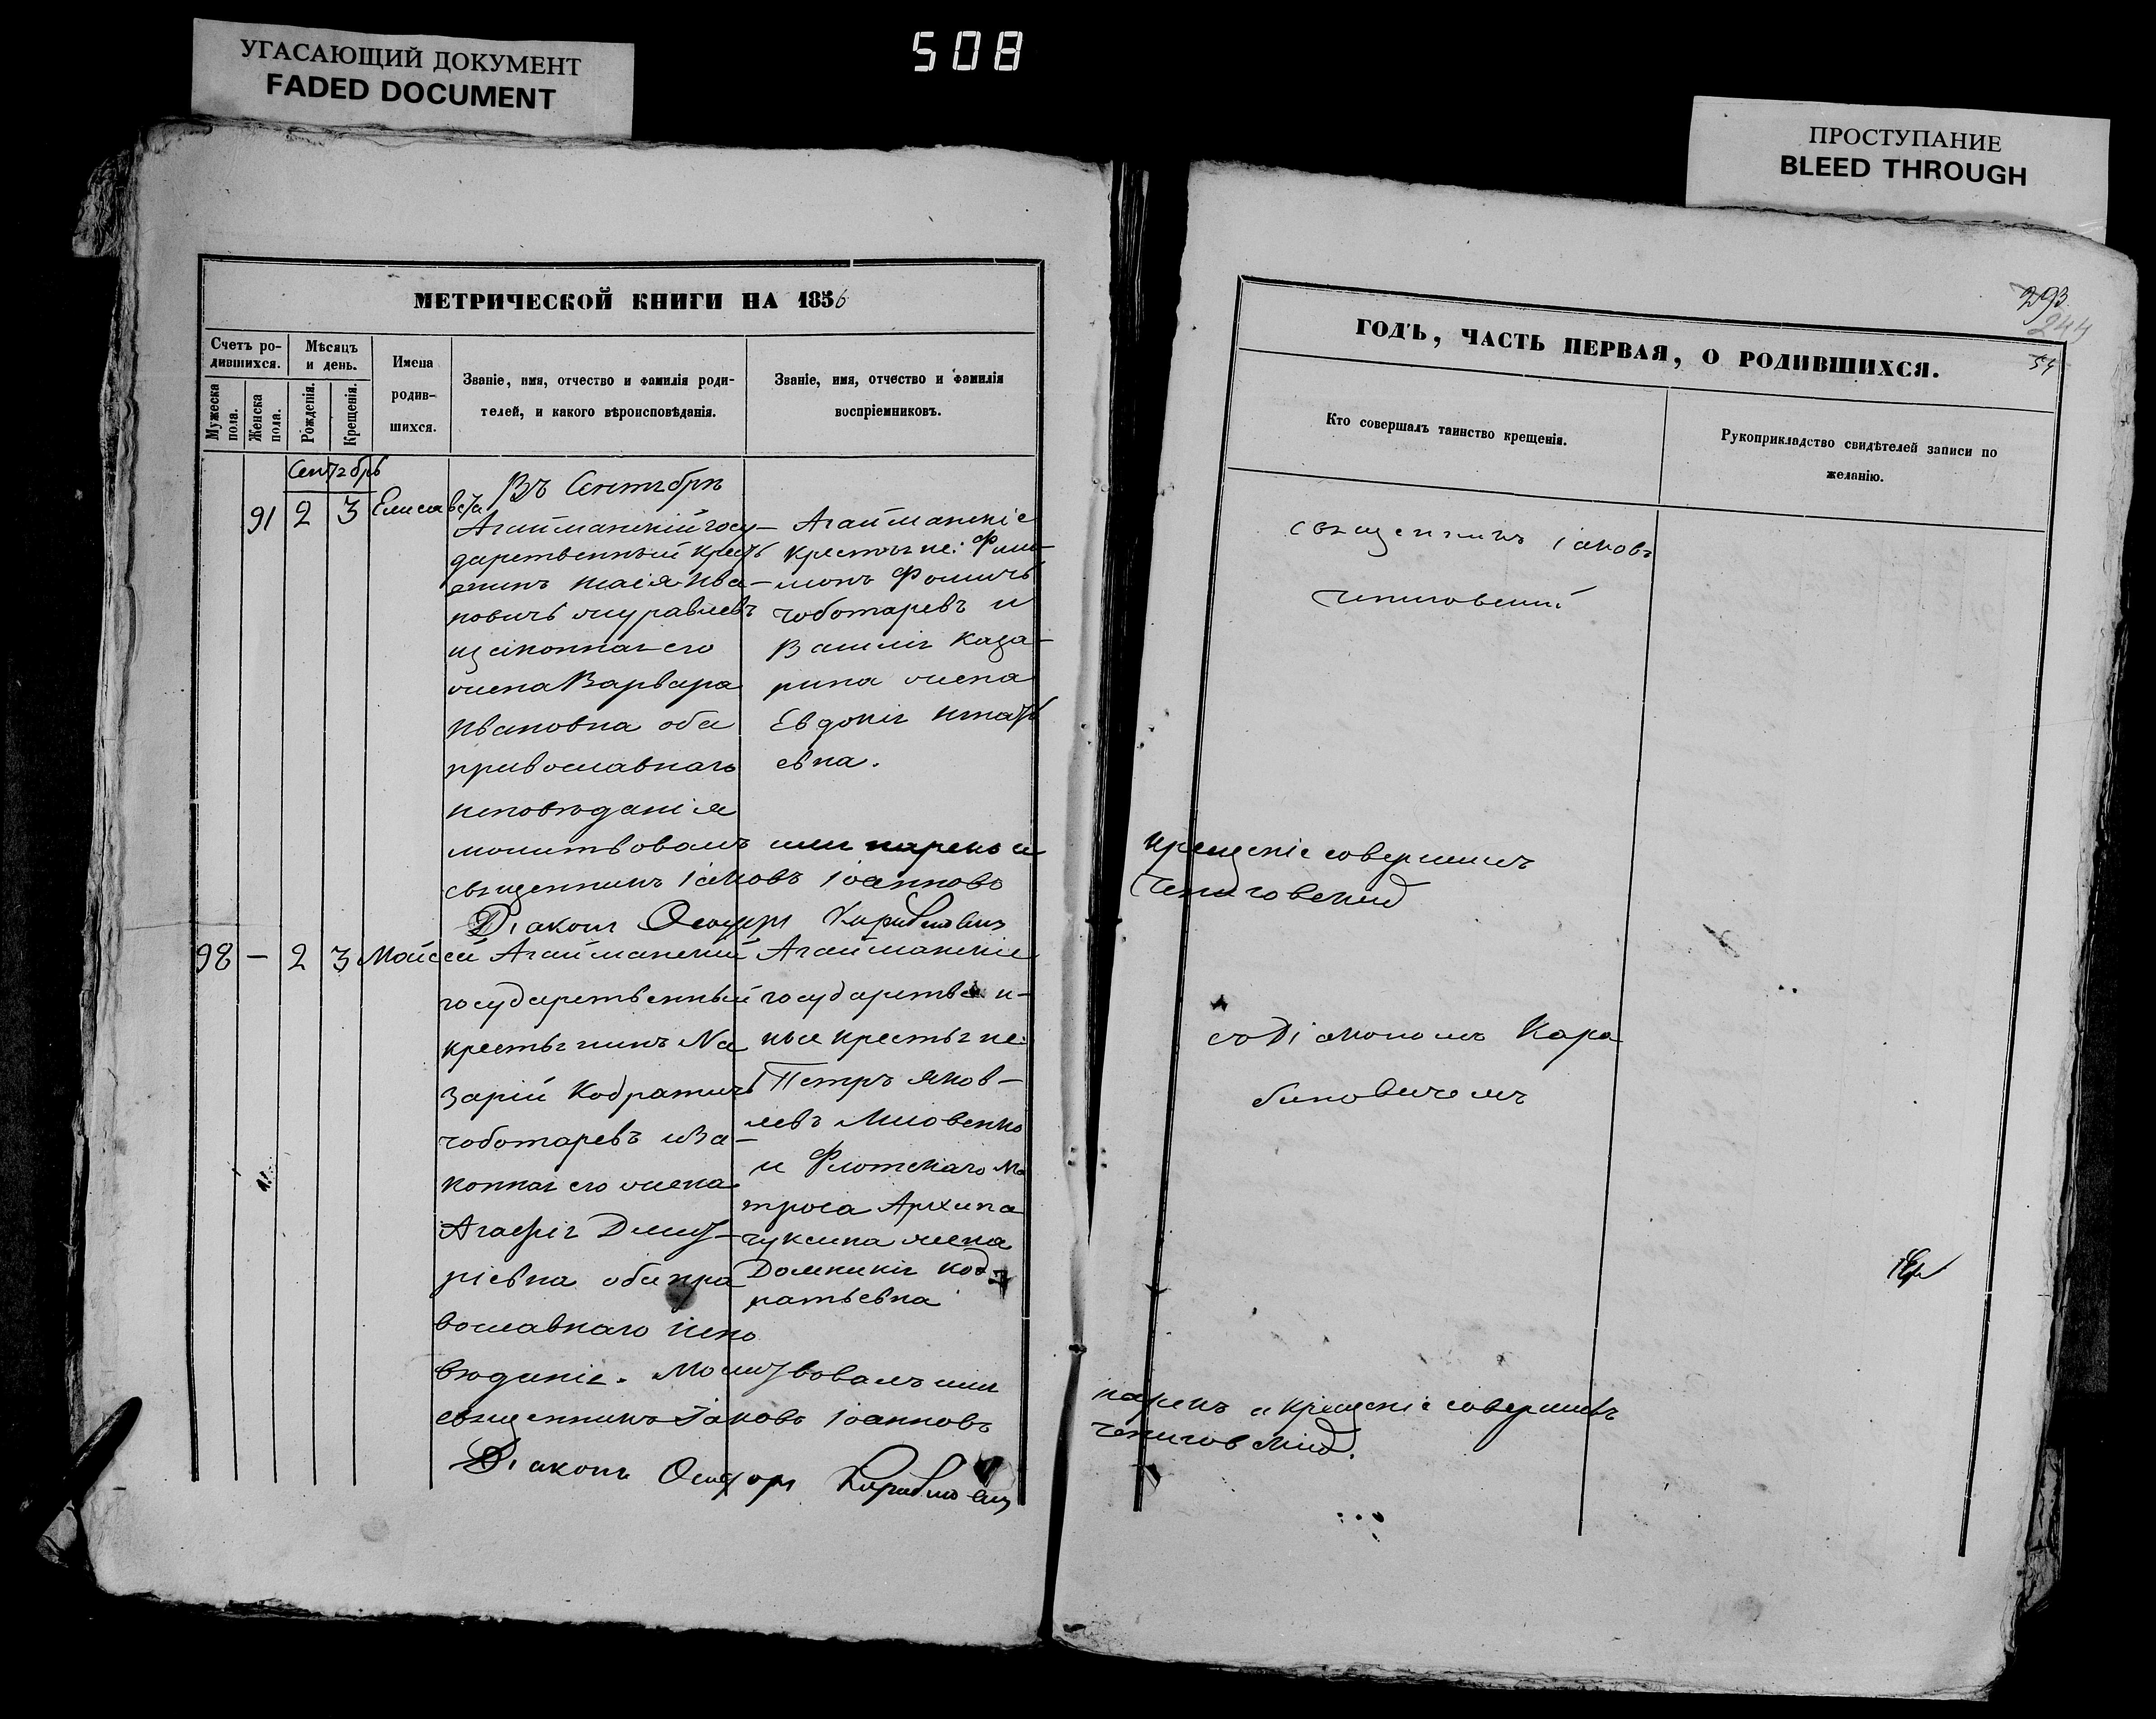 УГАСАЮЩИЙ ДОКУМЕНТ
FADED DOCUMENT
508
ПРОСТУПАНИЕ
BLEED THROUGH
МЕТРИЧЕСКОЙ КНИГИ НА 1856
Счетъ ро-
дившихся.
Мѣсяцъ
и день.
Мужеска
пола.
Женска
пола.
Рожденія.
Крещенія.
Имена
родив-
шихся.
Званіе, имя, отчество и фамилія роди-
телей, и какого вѣроисповѣданія.
Званіе, имя, отчество и фамилія
воспріемниковъ.
Въ Сентябрѣ
91 2 3 Елисавета
Агайманскій госу-
дарственный кресть
янинъ Ива-
новичъ Журавлевъ
его
жена Варвара
Ивановна оба
православнаго
исповѣданія
молитвовалъ имя нарекъ и
священникъ Іаковъ Іоанновъ
Діаконъ
Агайманскіе
крестьяне: Фили-
монъ Фомичъ
чоботаревъ и
Василія Каза-
рина жена
Евдокія Игнать
евна.
98 - 2 3 Моисей
Агайманскій
государственный
крестьянинъ На
зарій Кодратичъ
чоботаревъ иза-
конная его жена
Агафія Дмит-
ріевна оба пра
вославнаго испо
вѣданія. Молитвовалъ имя
священникъ Іаковъ Іоанновъ
Діаконъ
Агайманскіе
государствен-
ные крестьяне:
Петръ Яков-
левъ
и Флотскаго Ма
троса Архипа
жена
Домникія Код-
ратьевна
293
244
54
ГОДЪ, ЧАСТЬ ПЕРВАЯ, О РОДИВШИХСЯ.
Кто совершалъ таинство крещенія.
Рукоприкладство свидѣтелей записи по
желанію.
священникъ Іаковъ
крещеніе совершилъ
Чепиговскій
съ Діакономъ Кара
биновичемъ
нарекъ и крещеніе совершилъ
Чепиговскій.